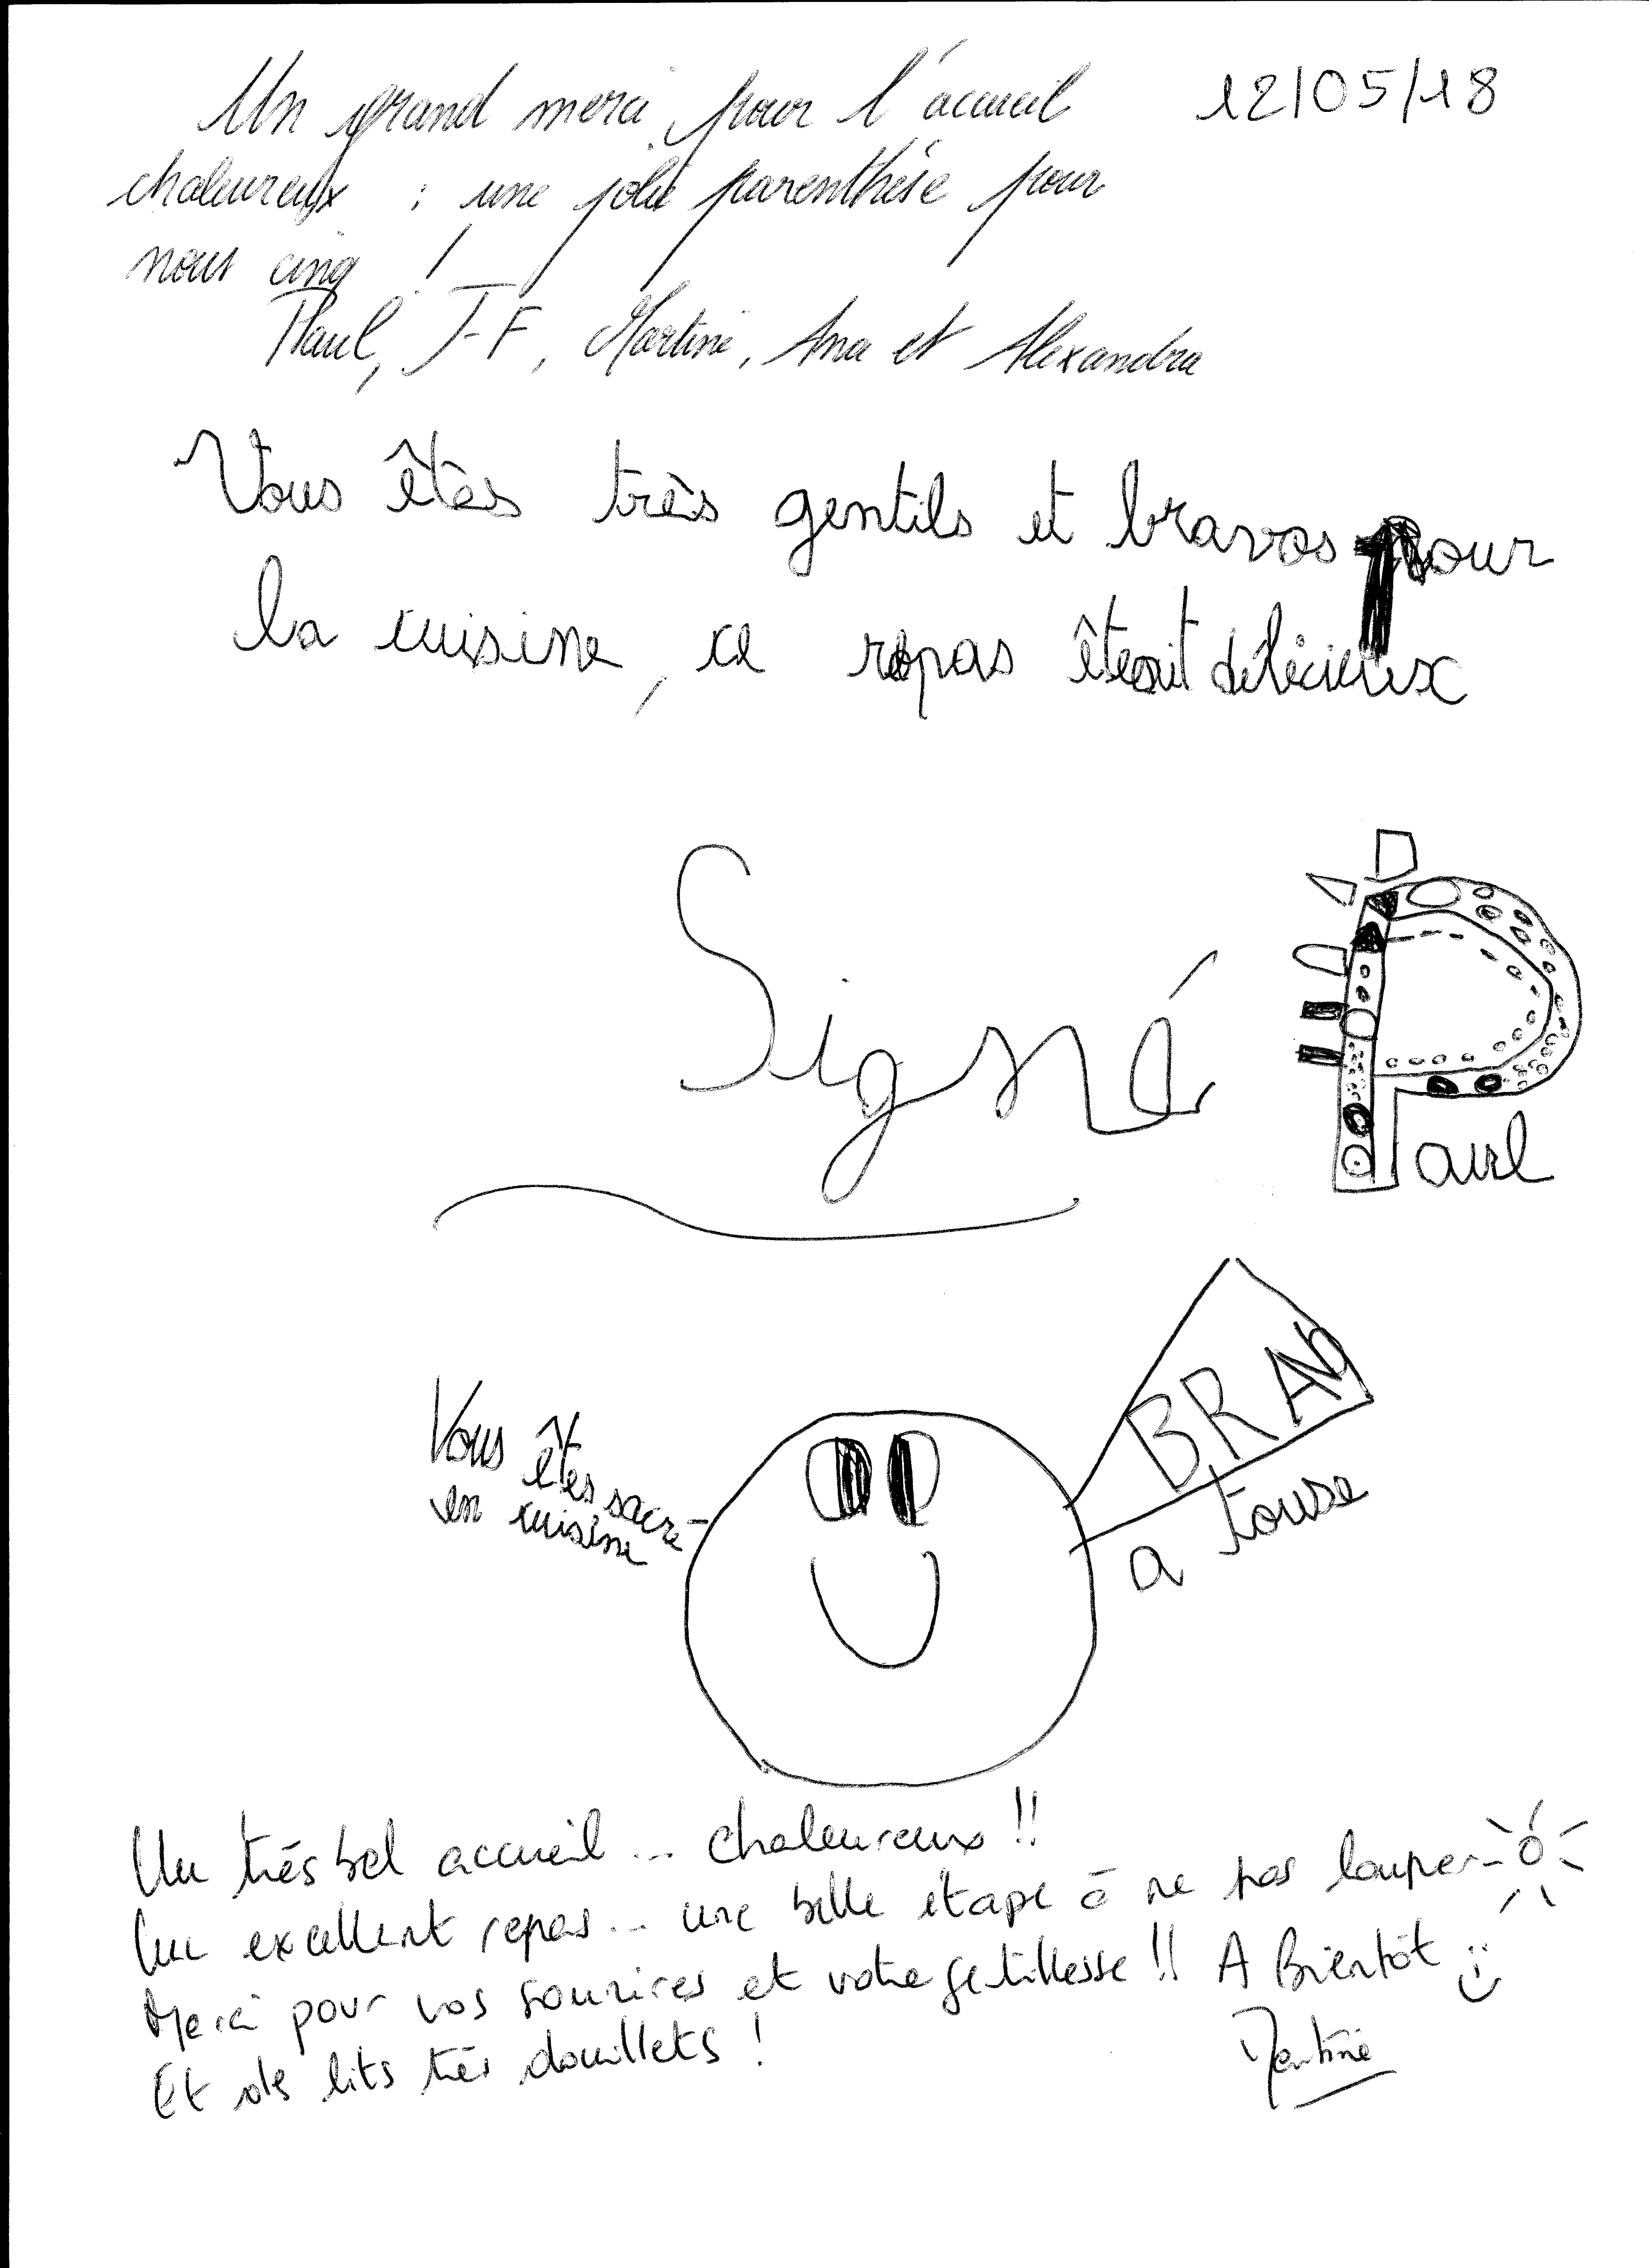 Un grand merci pour l'accueil 12/05/18
chaleureux : une jolie parenthèse pour
nous cinq !
Paul, J-F, Martine, Ana et Alexandra
Vous êtes très gentils et bravos pour
la cuisine, ce repas êteait délicieux
Signé Paul
BRAVO
Vous êtes sacré
en cuisine
a touse
Un très bel accueil... chaleureux !!
Un excellent repas... une belle etape à ne pas louper
Merci pour vos sourires et votre getillesse !! A Bientôt
Et des lits très douillets !
Martine